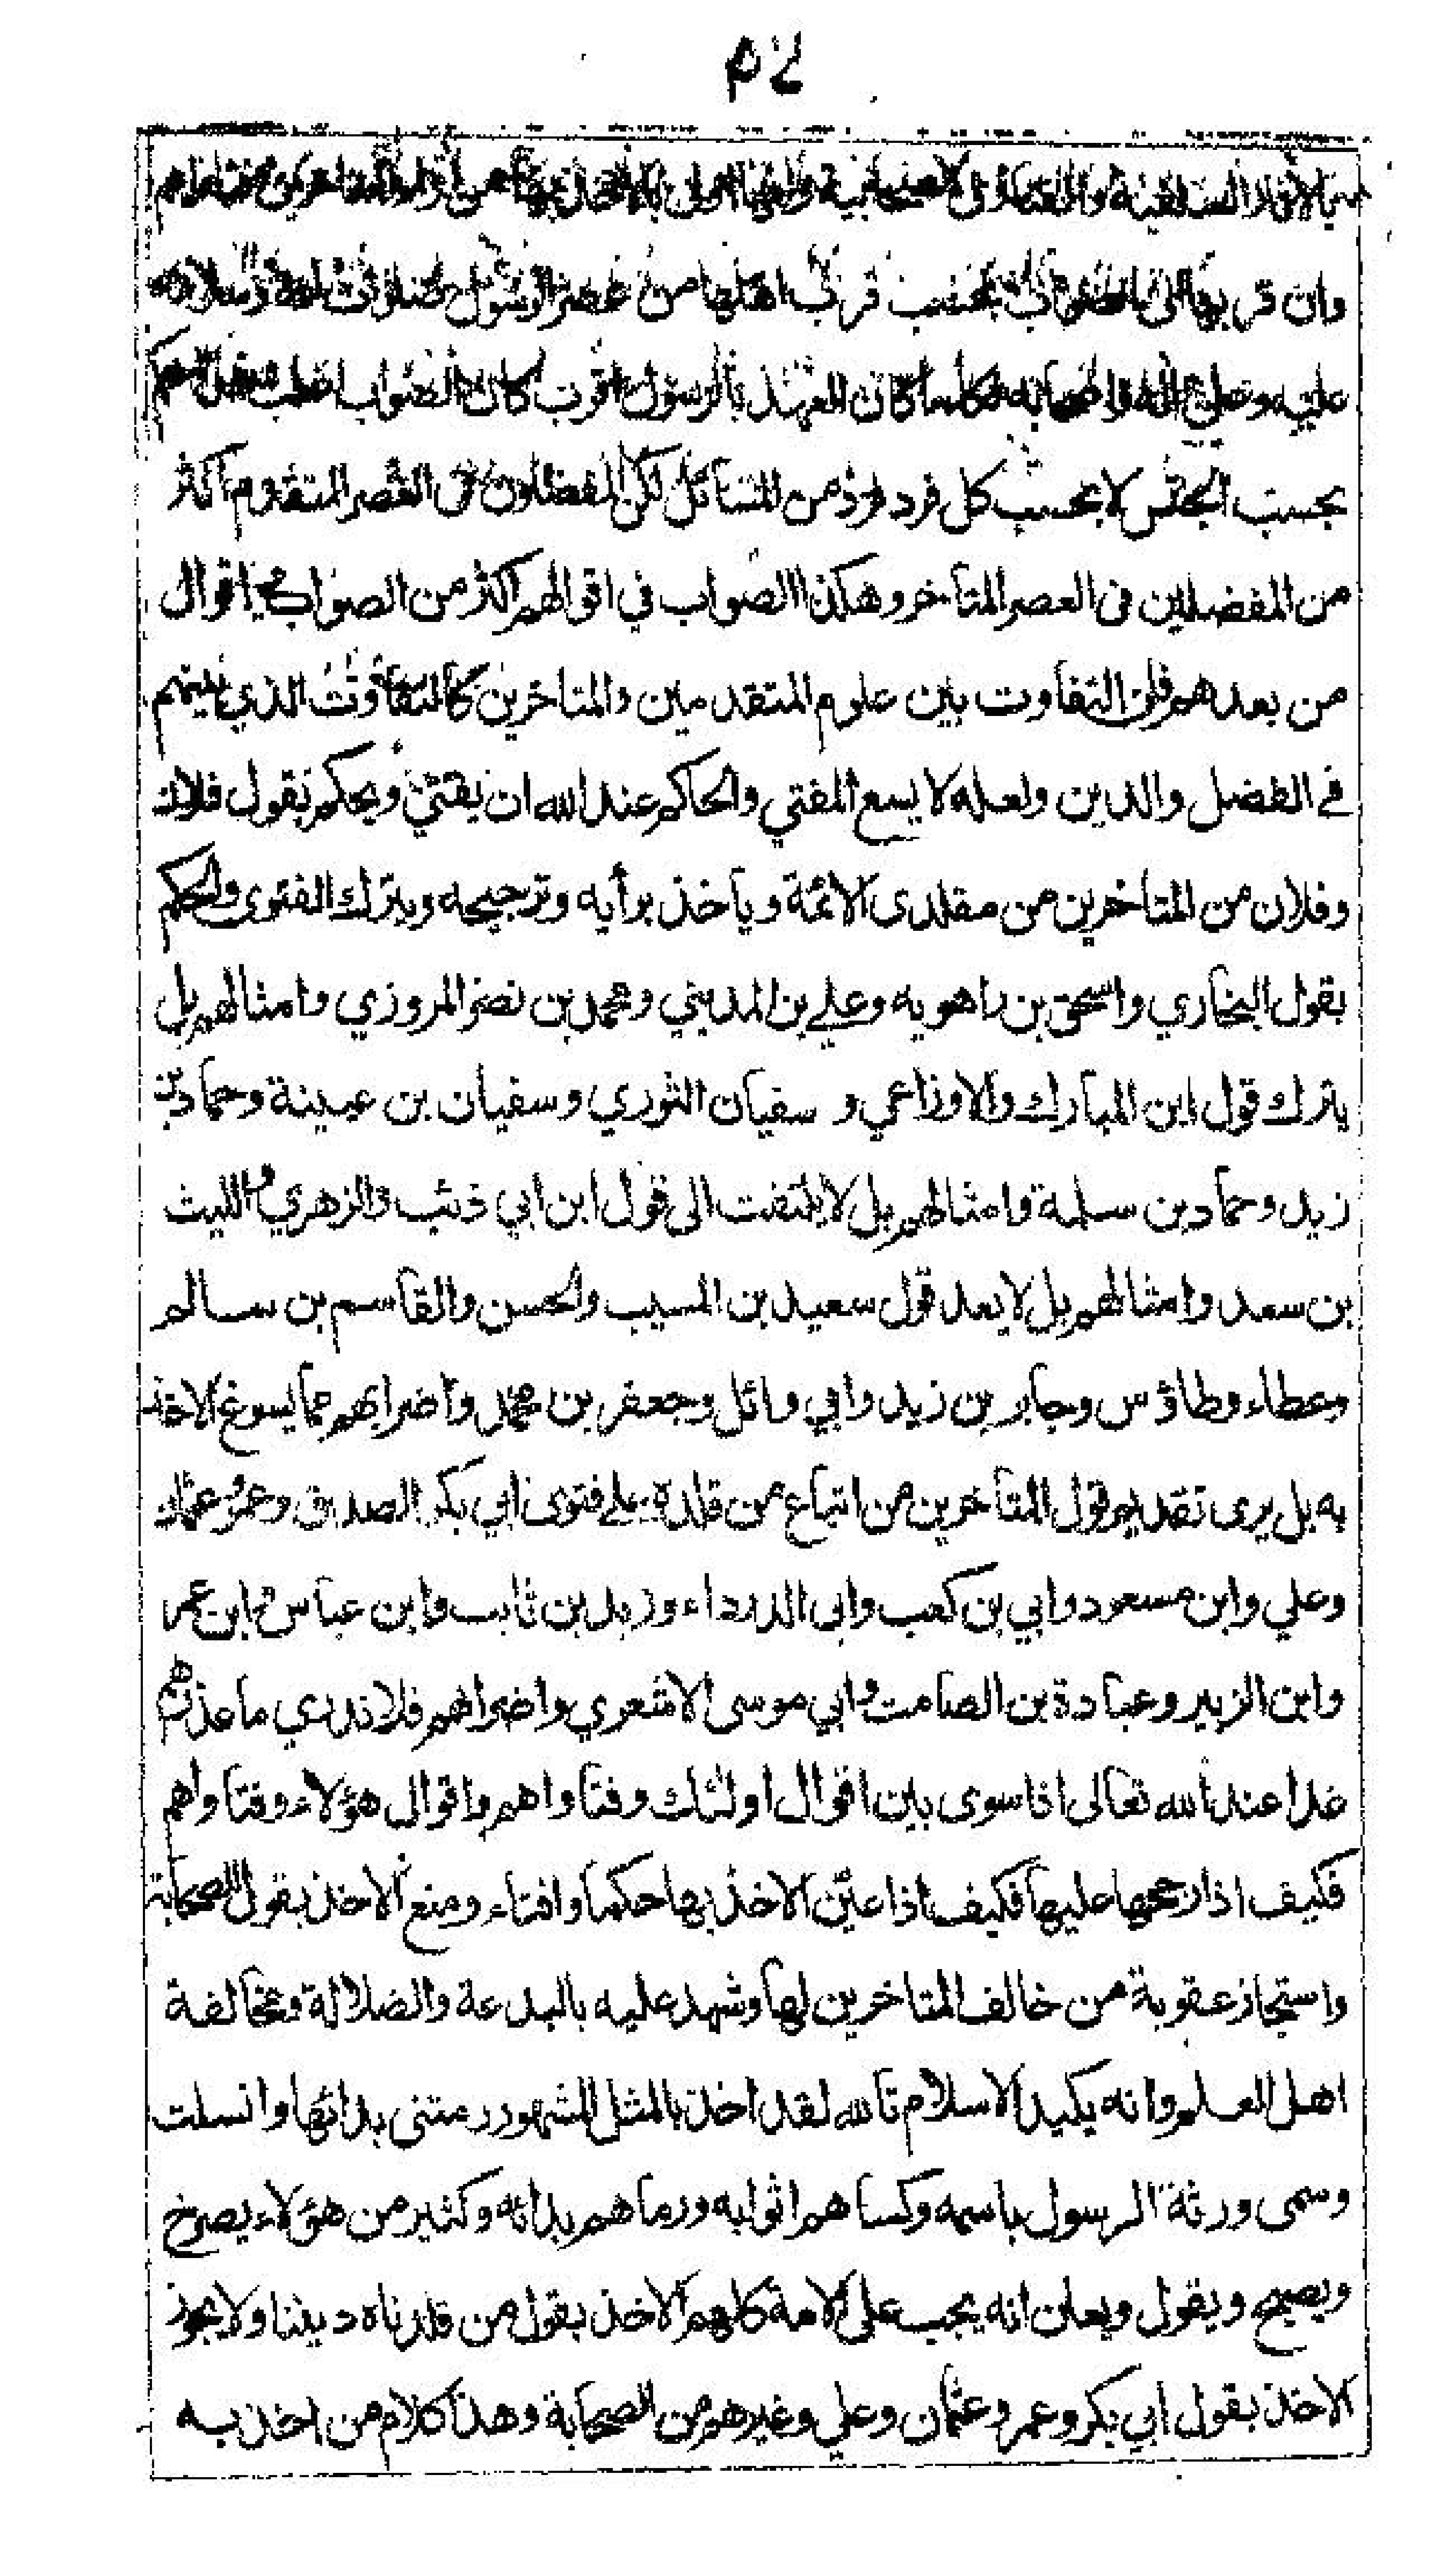 بالآثار السلفية والفتاوى الصحابية وانها اولى بالأخذ بها من آراء المتاخرين وفتاواهم
وان قربها الى الصواب بحسب قرب اهلها من عصر الرسول صلوات الله وسلامه
عليه وعلى آله واصحابه فكلما كان العهد بالرسول اقرب كان الصواب اغلب
بحسب الجنس لا بحسب كل فرد فرد من المسائل لكن المفضلون فى العصر المتقدم اكثر
من المفضلين فى العصر المتأخر وهكذا الصواب في اقوالهم اكثر من الصواب في اقوال
من بعدهم فان التفاوت بين علوم المتقدمين والمتاخرين كالتفاوت الذي بينهم
في الفضل والدين ولعله لا يسع المفتي والحاكم عند الله ان يفتي ويحكم بقول فلان
وفلان من المتاخرين من مقلدى الائمة ويأخذ برأيه وترجيحه ويترك الفتوى والحكم
بقول البخاري واسحق بن راهويه وعلي بن المديني ومحمد بن نصر المروزي وامثالهم بل
يترك قول ابن المبارك والاوزاعي و سفيان الثوري وسفيان بن عيينة وحماد بن
زيد وحماد بن سلمة وامثالهم بل لا يلتفت الى قول ابن ابي ذئب والزهري والليث
بن سعد وامثالهم بل لا يعد قول سعيد بن المسيب والحسن والقاسم بن سالم
وعطاء وطاؤس وجابر بن زيد وابي وائل وجعفر بن محمد واضرابهم مما يسوغ الاخذ
به بل يرى تقديم قول المتأخرين من اتباع من قلده على فتوى ابي بكر الصديق وعمر وعثمان
وعلي وابن مسعود وابي بن كعب وابى الدرداء وزيد بن ثابت وابن عباس وابن عمر
وابن الزبير وعبادة بن الصامت وابي موسى الاشعري واضرابهم فلا ندري ما عذرهم
غدا عند الله تعالى اذا سوى بين اقوال اولئك وفتاواهم واقوال هؤلاء وفتاواهم
فكيف اذا رجحها عليها فكيف اذا عين الاخذ بها حكما وافتاء ومنع الاخذ بقول الصحابة
واستجاز عقوبة من خالف المتاخرين لها وشهد عليه بالبدعة والضلالة ومخالفة
اهل العلم وانه يكيد الاسلام تالله لقد اخذ بالمثل المشهور رمتنى بدائها وانسلت
وسمى ورثة الرسول باسمه وكساهم اثوابه ورماهم بدائه وكثير من هؤلاء يصرخ
ويصيح ويقول ويعلن انه يجب على الامة كلهم الاخذ بقول من قلدناه ديننا ولا يجوز
الاخذ بقول ابي بكر وعمر وعثمان وعلي وغيرهم من الصحابة وهذا كلام من اخذ به